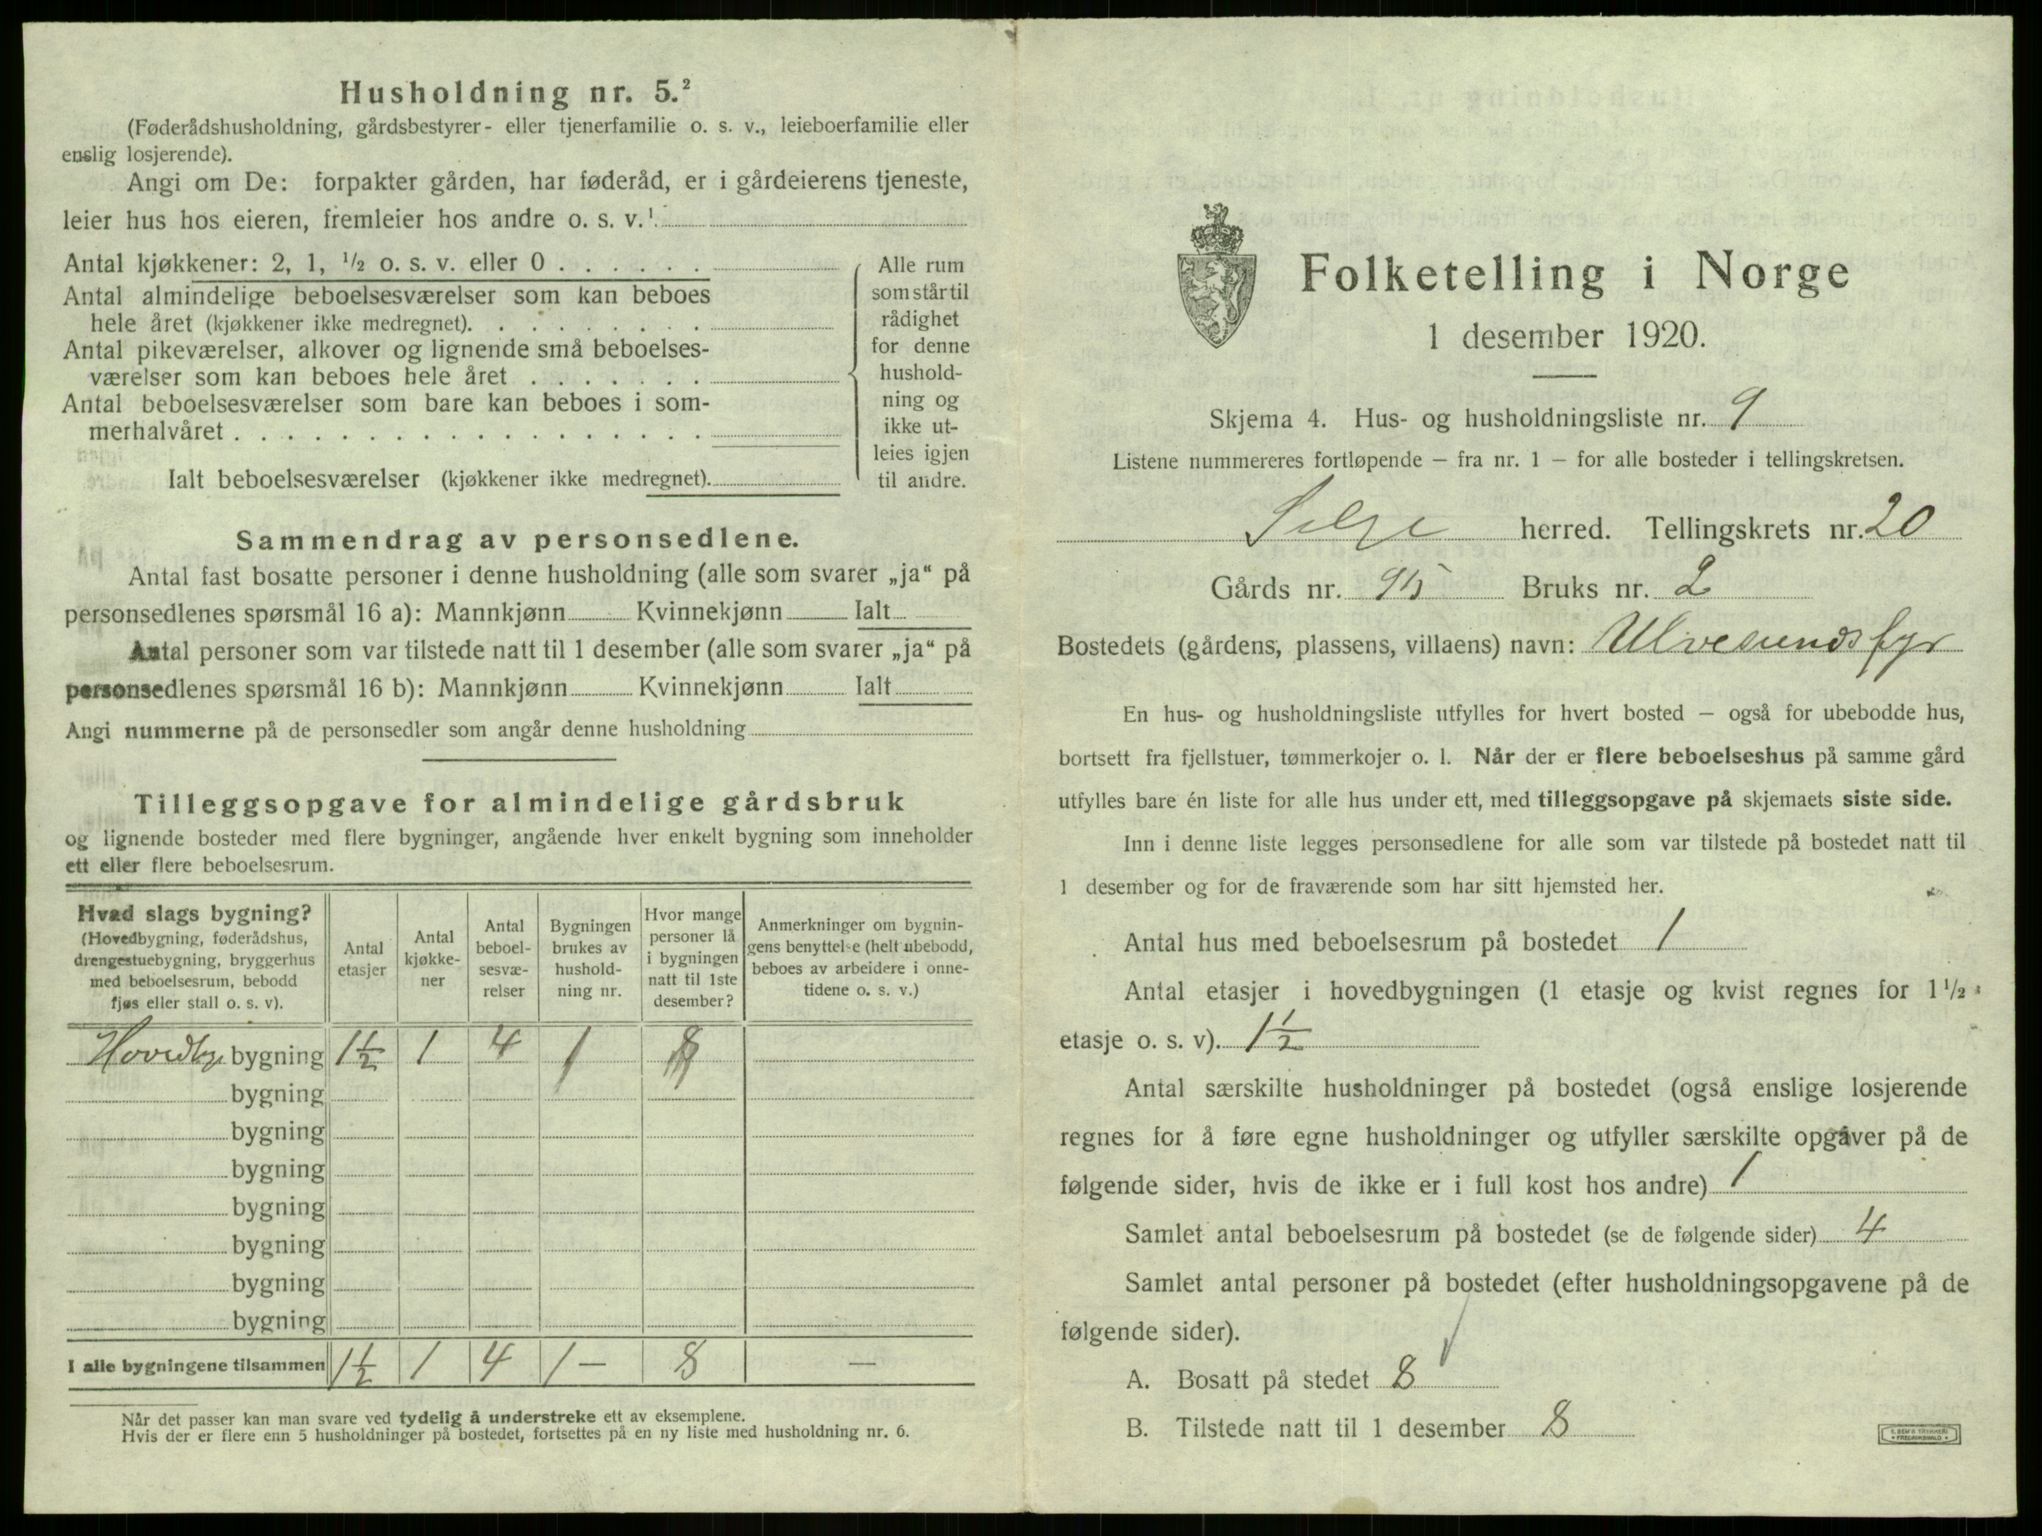 Husholdning nr. 5.²
(Føderådshusholdning, gårdsbestyrer- eller tjenerfamilie o. s. v., leieboerfamilie eller
enslig losjerende).
Angi om De: forpakter gården, har føderåd, er i gårdeierens tjeneste,
leier hus hos eieren, fremleier hos andre o. s. v.¹
Antal kjøkkener: 2, 1, ½ o. s. v. eller 0 . . . . . .
Antal almindelige beboelsesværelser som kan beboes
hele året (kjøkkener ikke medregnet). . . . . . . . .
Antal pikeværelser, alkover og lignende små beboelses-
værelser som kan beboes hele året . . . . . . .
Antal beboelsesværelser som bare kan beboes i som-
merhalvåret . . . . . . . . . . . . . . . . . .
Ialt beboelsesværelser (kjøkkener ikke medregnet).
Alle rum
som står til
rådighet
for denne
hushold-
ning og
ikke ut-
leies igjen
til andre.
Sammendrag av personsedlene.
Antal fast bosatte personer i denne husholdning (alle som svarer „ja“ på
personsedlenes spørsmål 16 a): Mannkjønn Kvinnekjønn Ialt
Antal personer som var tilstede natt til 1 desember (alle som svarer „ja“ på
personsedlenes spørsmål 16 b): Mannkjønn Kvinnekjønn Ialt
Angi nummerne på de personsedler som angår denne husholdning
Tilleggsopgave for almindelige gårdsbruk
og lignende bosteder med flere bygninger, angående hver enkelt bygning som inneholder
ett eller flere beboelsesrum.
Hvad slags bygning?
(Hovedbygning, føderådshus,
drengestuebygning, bryggerhus
med beboelsesrum, bebodd
fjøs eller stall o. s. v).
Antal
etasjer
Antal
kjøkke-
ner
Antal
beboel-
sesvæ-
relser
Bygningen
brukes av
hushold-
ning nr.
Hvor mange
personer lå
i bygningen
natt til 1ste
desember?
Anmerkninger om bygnin-
gens benyttelse (helt ubebodd,
beboes av arbeidere i onne-
tidene o. s. v.)
Hovedbyg bygning 1½ 1 4 1 8
bygning
bygning
bygning
bygning
bygning
bygning
bygning
I alle bygningene tilsammen 1½ 1 4 1 — 8 —
Når det passer kan man svare ved tydelig å understreke ett av eksemplene.
Hvis der er flere enn 5 husholdninger på bostedet, fortsettes på en ny liste med husholdning nr. 6.
Folketelling i Norge
1 desember 1920.
Skjema 4. Hus- og husholdningsliste nr. 9
Listene nummereres fortløpende – fra nr. 1 – for alle bosteder i tellingskretsen.
Selje herred. Tellingskrets nr. 20
Gårds nr. 95 Bruks nr. 2
Bostedets (gårdens, plassens, villaens) navn: Ulvesunds fyr
En hus- og husholdningsliste utfylles for hvert bosted – også for ubebodde hus,
bortsett fra fjellstuer, tømmerkojer o. l. Når der er flere beboelseshus på samme gård
utfylles bare én liste for alle hus under ett, med tilleggsopgave på skjemaets siste side.
Inn i denne liste legges personsedlene for alle som var tilstede på bostedet natt til
1 desember og for de fraværende som har sitt hjemsted her.
Antal hus med beboelsesrum på bostedet 1
Antal etasjer i hovedbygningen (1 etasje og kvist regnes for 1½
etasje o. s. v). 1½
Antal særskilte husholdninger på bostedet (også enslige losjerende
regnes for å føre egne husholdninger og utfyller særskilte opgaver på de
følgende sider, hvis de ikke er i full kost hos andre) 1
Samlet antal beboelsesrum på bostedet (se de følgende sider) 4
Samlet antal personer på bostedet (efter husholdningsopgavene på de
følgende sider).
A. Bosatt på stedet 8
B. Tilstede natt til 1 desember 8